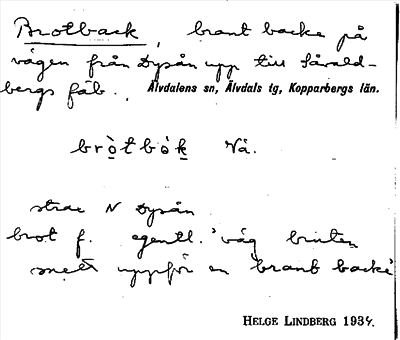 Brotback, brant backe på
vägen från Dysån upp till Såvald-
bergs fäb. Älvdalens sn, Älvdals tg, Kopparbergs län.
bròtbòk Vå.
strax N Dysån
brot f. egentl. 'väg bruten
snett uppför en brant backe'
HELGE LINDBERG 1934.